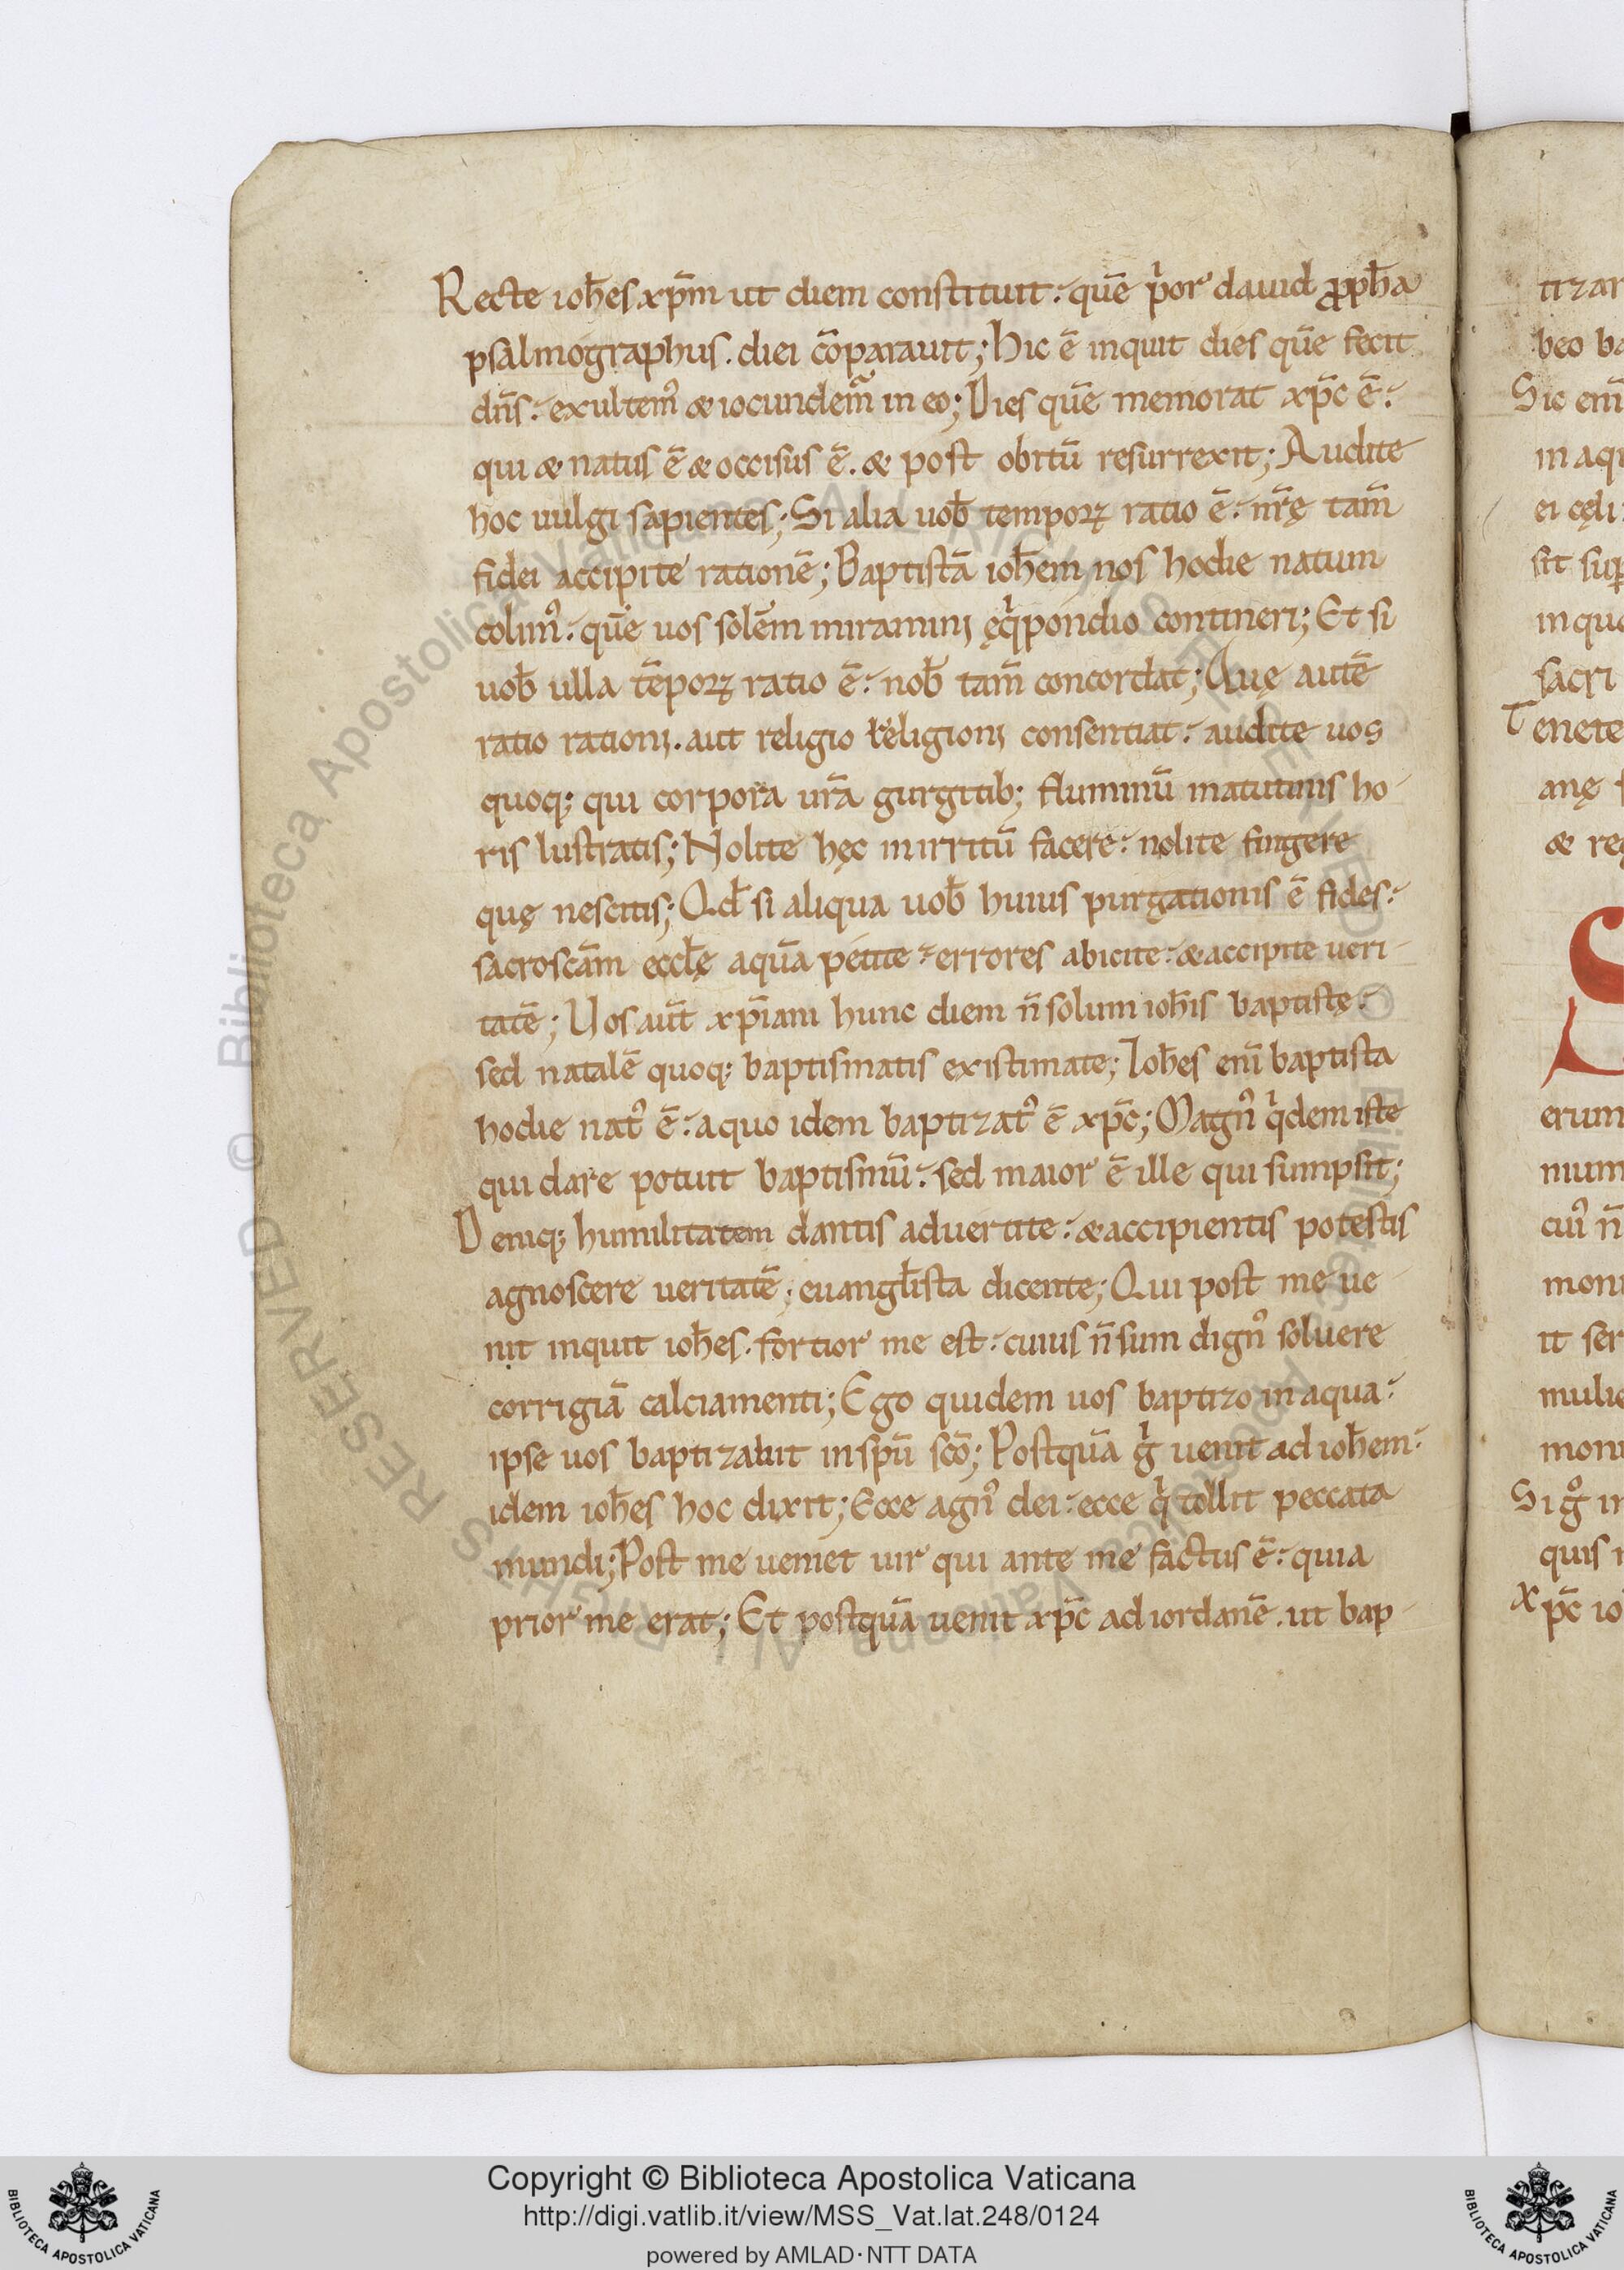 Recte ioh̄es xp̄m ut diem constituit. quē prior dauid ꝓph̄a
psalmographus. diei cōparauit; Hic ē inquit dies quē fecit
dn̄s. exultemꝰ & iocundem̃ in eo; Dies quē memorat xp̄c ē.
qui & natus ē & occisus ē. & post obitū resurrexit; Audite
hoc uulgi sapientes; Si alia uob̄ temporꝝ ratio ē. nr̄ę tam̄
fidei accipite rationē; Baptistā ioh̄em nos hodie natum
colimꝰ. quē uos solēm miramini ęqͥpondio contineri; Et si
uob̄ ulla tēporꝝ ratio ē. nob̄ tam̄ concordat; Quę autē
ratio rationi. aut religio religioni consentiat. audite uos
quoq; qui corpora ur̄a gurgitib; fluminū matutinis ho
ris lustratis; Nolite hęc in irritū facere. nolite fingere
quę nescitis; Qd̄ si aliqua uob̄ huius purgationis ē fides.
sacroscām eccl̄ę aquā petite. errores abicite. & accipite ueri
tatē; Uos aūt xp̄iani hunc diem n̄ solum ioh̄is baptistę.
sed natalē quoq; baptismatis existimate; Ioh̄es eni baptista
hodie natꝰ ē. a quo idem baptizatꝰ ē xp̄c; Magnꝰ qͥdem iste
qui dare potuit baptismū. sed maior ē ille qui sumpsit;
Deniq; humilitatem dantis aduertite. & accipientis potestis
agnoscere ueritatē. euangl̄ista dicente; Qui post me ue
nit inquit ioh̄es. fortior me est. cuius n̄ sum dignꝰ soluere
corrigiā calciamenti; Ego quidem uos baptizo in aqua.
ipse uos baptizabit in spū scō; Postquā gͥ uenit ad ioh̄em.
idem ioh̄es hoc dixit; Ecce agnꝰ dei. ecce qͥ tollit peccata
mundi; Post me ueniet uir qui ante me factus ē. quia
prior me erat; Et postquā uenit xp̄c ad iordanē. ut bap
tizar
beo ba
Sic eni
in aqu
ei cęli
sit sup
in quo
sacri
Tenete
anę
& reg
S
erum
nium
cuiꝰ n̄
moni
it ser
mulie
moni
Si gͦ in
quis
xp̄c io
© Biblioteca Apostolica Vaticana ALL RIGHTS RESERVED
© Biblioteca Apostolica Vaticana ALL RIGHTS RESERVED
BIBLIOTECA APOSTOLICA VATICANA
Copyright © Biblioteca Apostolica Vaticana
http://digi.vatlib.it/view/MSS_Vat.lat.248/0124
powered by AMLAD·NTT DATA
BIBLIOTECA APOSTOLICA VATICANA